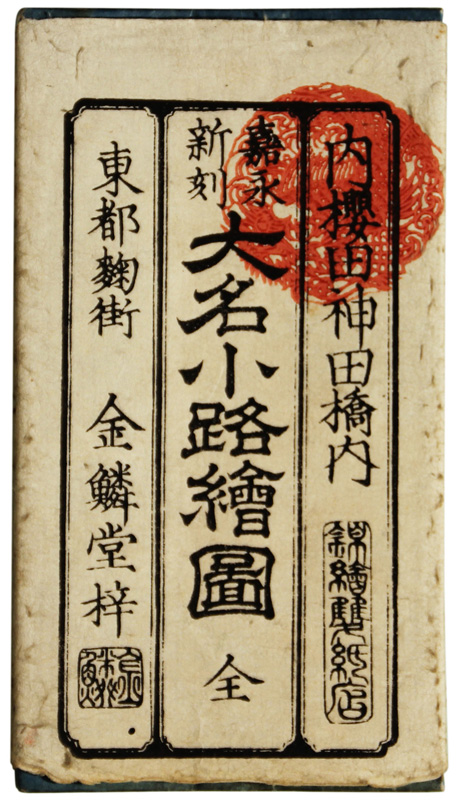 内櫻田神田橋内
錦繪雙紙店
嘉永
新刻
大名小路繪圖 全
東都麴街 金鱗堂梓